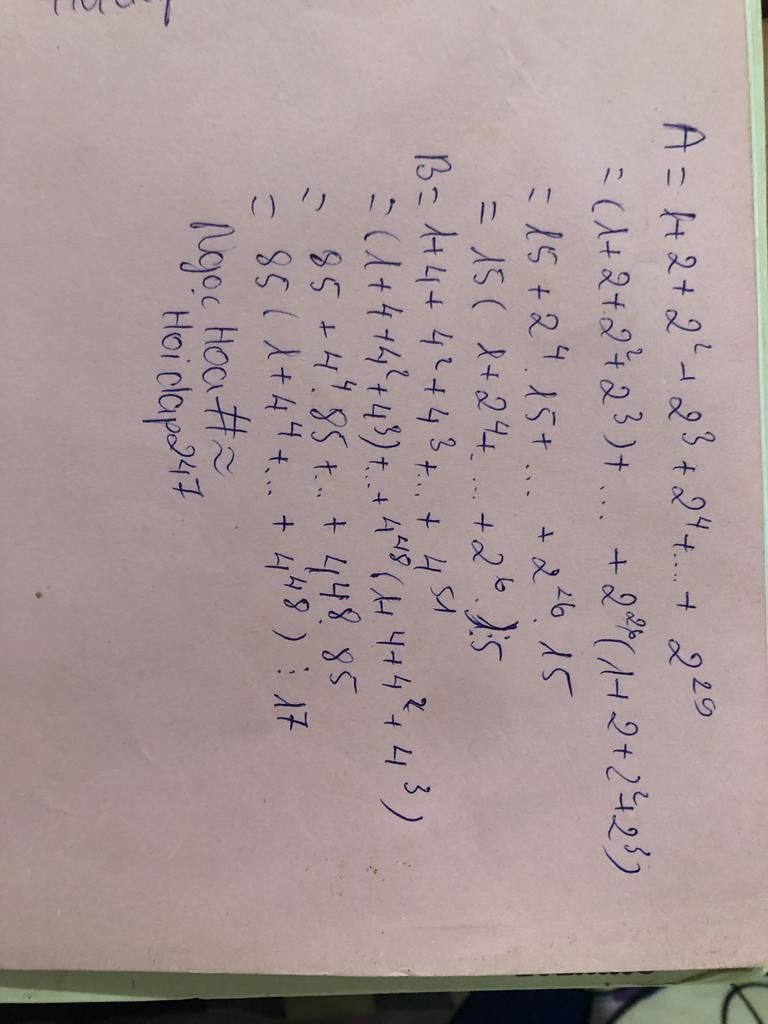 A = 1+2+2²+2³+2⁴+....+ 2²⁹
= (1+2+2²+2³)+... +2²⁶(1+2+2²+2³)
= 15+2⁴.15+... +2²⁶.15
= 15( 1+2⁴+... +2⁶.15
B= 1+4+4²+4³+...+4⁵¹
= (1+4+4²+4³)+...+4⁴⁸(1+4+4²+4³)
= 85+4⁴.85+...+4⁴⁸.85
= 85(1+4⁴+...+4⁴⁸) ⋮ 17
Ngọc Hoa #≈
Hoidap247